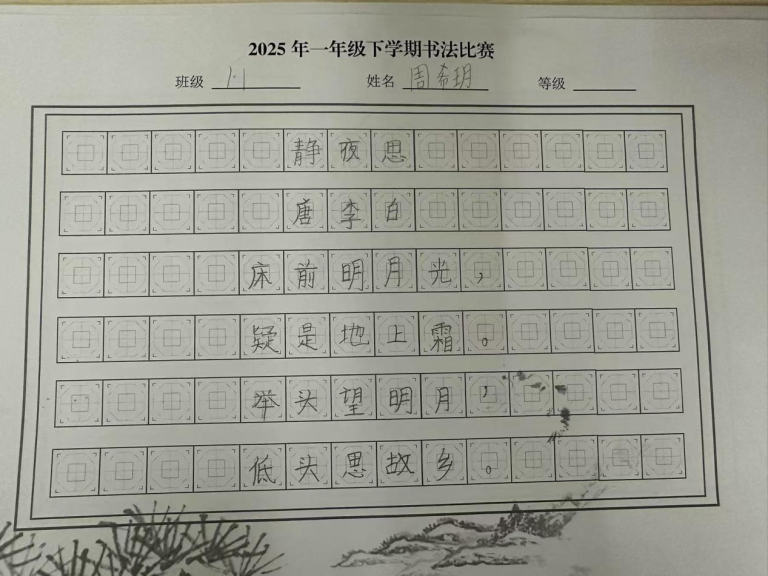 2025 年一年级下学期书法比赛
班级 1.1 姓名 周希玥 等级
静夜思
唐李白
床前明月光，
疑是地上霜。
举头望明月，
低头思故乡。